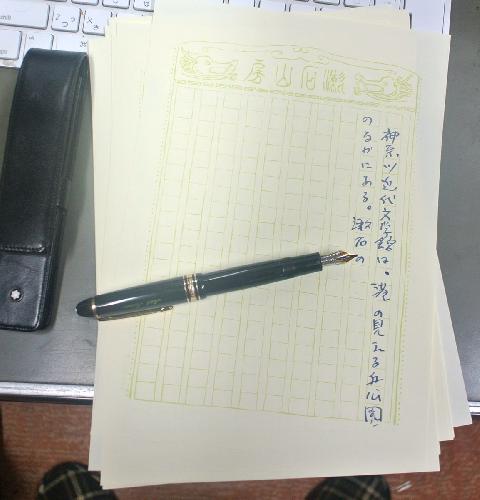 漱石山房
神奈川近代文学館は、港の見える丘公園
のなかにある。漱石の